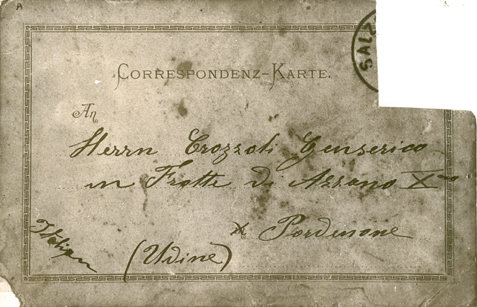 A
SALZ
CORRESPONDENZ-KARTE.
An
Herrn Trozzoli Genserico
in Fratte di Azzano Xmo
x Pordenone
(Udine)
Italien